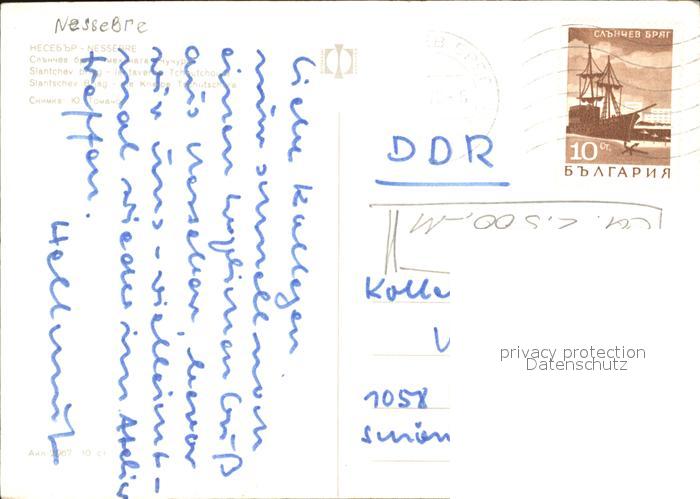 Nessebre
НЕСЕБЪР - NESSEBRE
Слънчев бряг
Slantchev brag -
Slantschev Brag -
Снимка: Ю.
Liebe Kollegen
nur schnell noch
einen herzlichen Gruß
aus Nessebar, bevor
wir uns - vielleicht -
mal wieder im Atelier
treffen.
Hellmut
СЛЪНЧЕВ БРЯГ
10 ст.
БЪЛГАРИЯ
DDR
Kolle
1058
privacy protection
Datenschutz